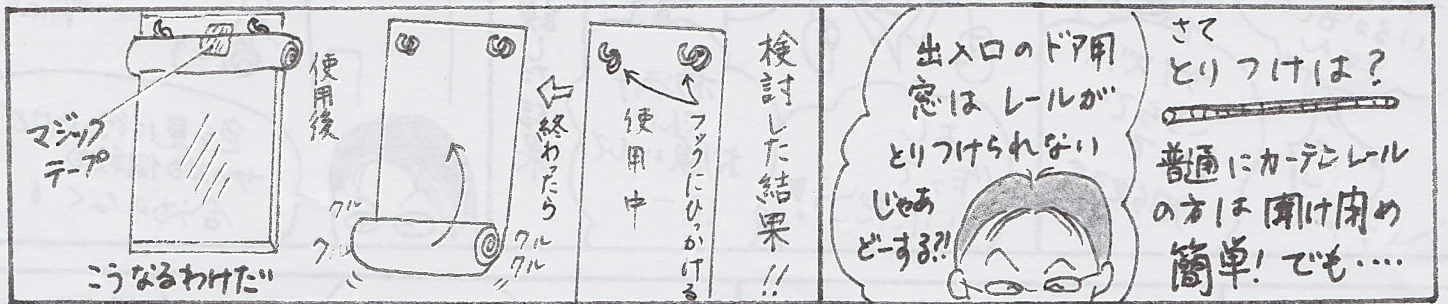 さて
とりつけは?
普通にカーテンレール
の方は開け閉め
簡単!でも・・・・
出入口のドア用
窓はレールが
とりつけられない
じゃあ
どーする?!
検討した結果!!
フックにひっかける
使用中
終わったら
クル
クル
クル
クル
使用後
マジック
テープ
こうなるわけだ